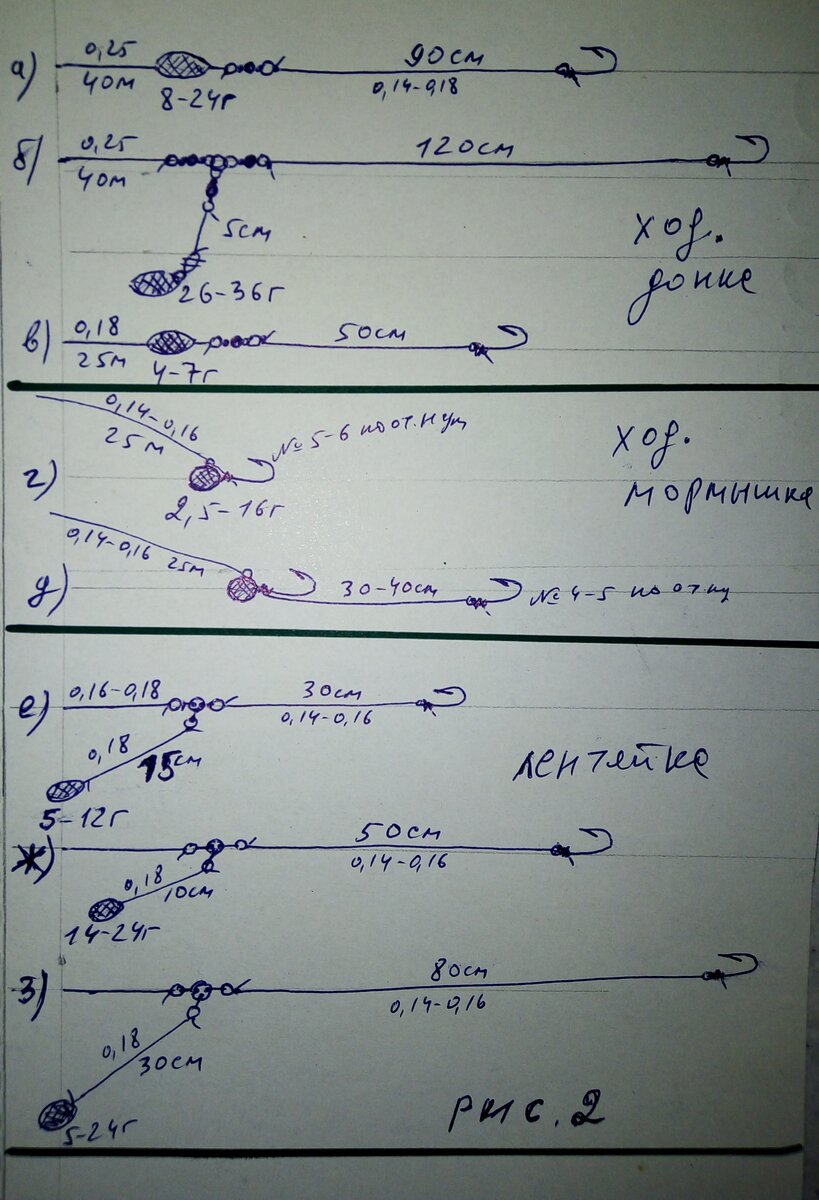 а) 0,25 90см
40м 8-24г 0,14-0,18
б) 0,25 120см
40м
5см ход.
26-36г донка
в) 0,18 50см
25м 4-7г
0,14-0,16
25м №5-6 по от. нум ход.
г) мормышка
2,5-16г
0,14-0,16 25м
д) 30-40см №4-5 по от ну
е) 0,16-0,18 30см
0,14-0,16
0,18 15см лентяйка
5-12г
ж) 50см
0,14-0,16
0,18 10см
14-24г
з) 80см
0,14-0,16
0,18
30см
5-24г рис. 2